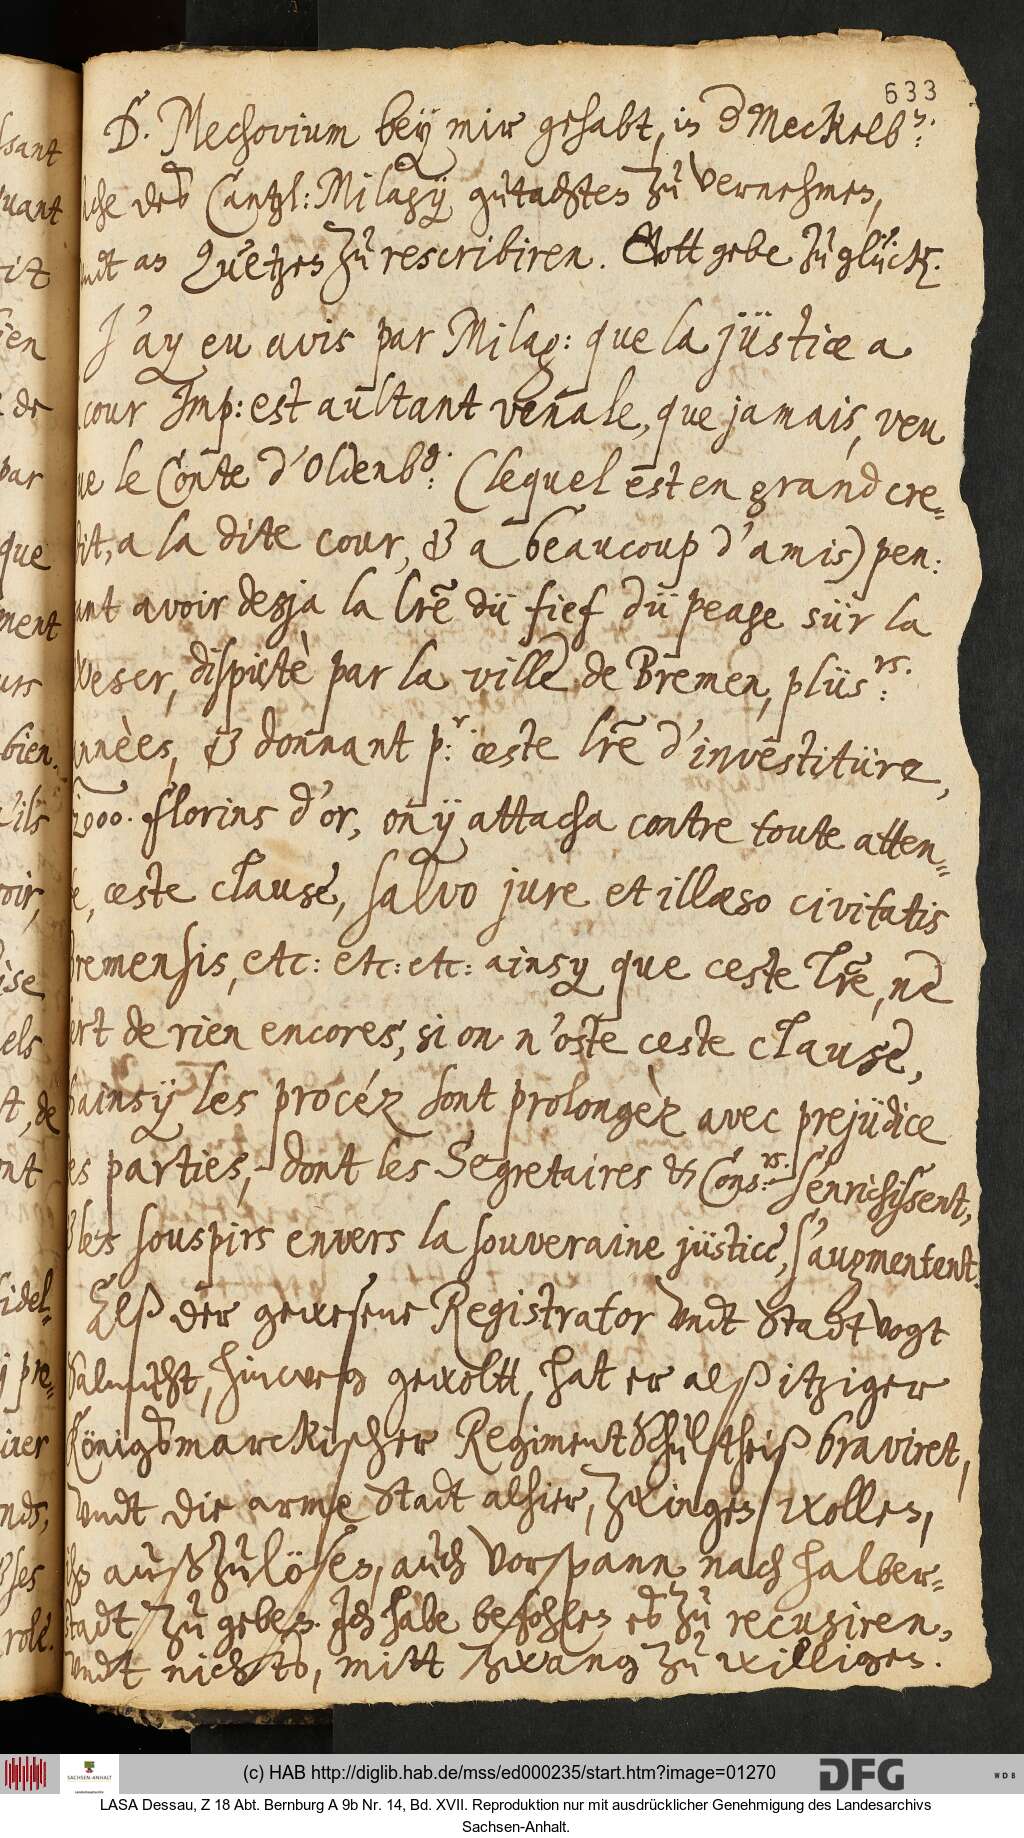 633
D. Mechovium bey mir gehabt, in d Meckelb:
sache des Cantzl: Milagÿ gutachten zu vernehmen,
undt an Quetzen zu rescribiren. Gott gebe zu glück.
J'ay eu avis par Milag: que la jüstice a
cour Imp: est aultant venale, que jamais, veu
que le Conte d'Oldenbg: (lequel est en grand cre-
dit, a la dite cour, & a beaucoup d'amis) pen:
sant avoir desja la lrẽ dü fief dü peage sür la
Weser, dispütè par la ville de Bremen, plüs:rs.
annèes, & donnant p:r ceste lrẽ d'investitüre,
florins d'or, on ÿ attacha contre toute atten-
te, ceste clause, salvo jure et illæso civitatis
Bremensis, etc: etc: etc: ainsy que ceste lrẽ, ne
sert de rien encores, si on n'oste ceste clause,
& ainsÿ les procéz sont prolongèz avec prejüdice
des parties, dont les Segretaires & Cons:rs. s'enrichissent,
& les souspirs envers la souveraine jüstice, s'augmentent.
Elß der gewesene Registrator undt Stadtvogt
Salmuth, hinweg gewollt, hat er alß itziger
Königsmarckischer Regiment Schultheiß braviret,
undt die arme Stadt alhier, zwingen wollen,
ihn außzulösen, auch vorspann nach halber-
stadt zu geben. Ich habe befohlen es zu recusiren,
undt nichts, mitt zwang zu willigen.
(c) HAB http://diglib.hab.de/mss/ed000235/start.htm?image=01270
SACHSEN-ANHALT
DFG
WDB
LASA Dessau, Z 18 Abt. Bernburg A 9b Nr. 14, Bd. XVII. Reproduktion nur mit ausdrücklicher Genehmigung des Landesarchivs
Sachsen-Anhalt.